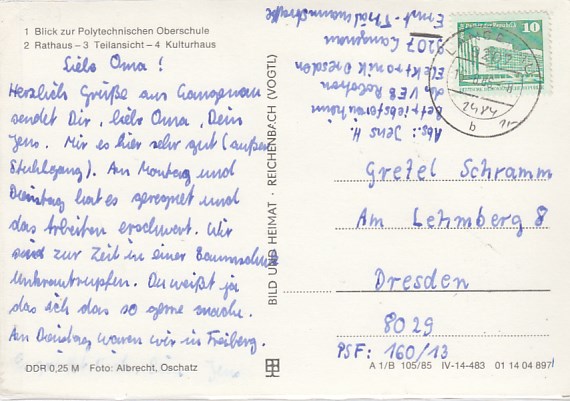 1 Blick zur Polytechnischen Oberschule
2 Rathaus – 3 Teilansicht – 4 Kulturhaus
Liebe Oma!
Herzlich Grüße aus Langenau
sendet Dir, liebe Oma, Dein
Jens. Mir es hier sehr gut (außer
Stuhlgang). Am Montag und
Dienstag hat es geregnet und
das Arbeiten erschwert. Wir
sind zur Zeit in einer Baumschule
Unkrautrupfen. Du weißt ja
das ich das so gerne mache.
Am Dienstag waren wir in Freiberg.
DDR 0,25 M Foto: Albrecht, Oschatz
BILD UND HEIMAT · REICHENBACH (VOGTL)
Abs.: Jens H.
Betriebsferienheim
des VEB Robotron
Elektronik Dresden
9207 Langenau
Ernst-Thälmannstraße
10
Gretel Schramm
Am Lehmberg 8
Dresden
8029
PSF: 160/13
A 1/B 105/85 IV-14-483 01 14 04 897